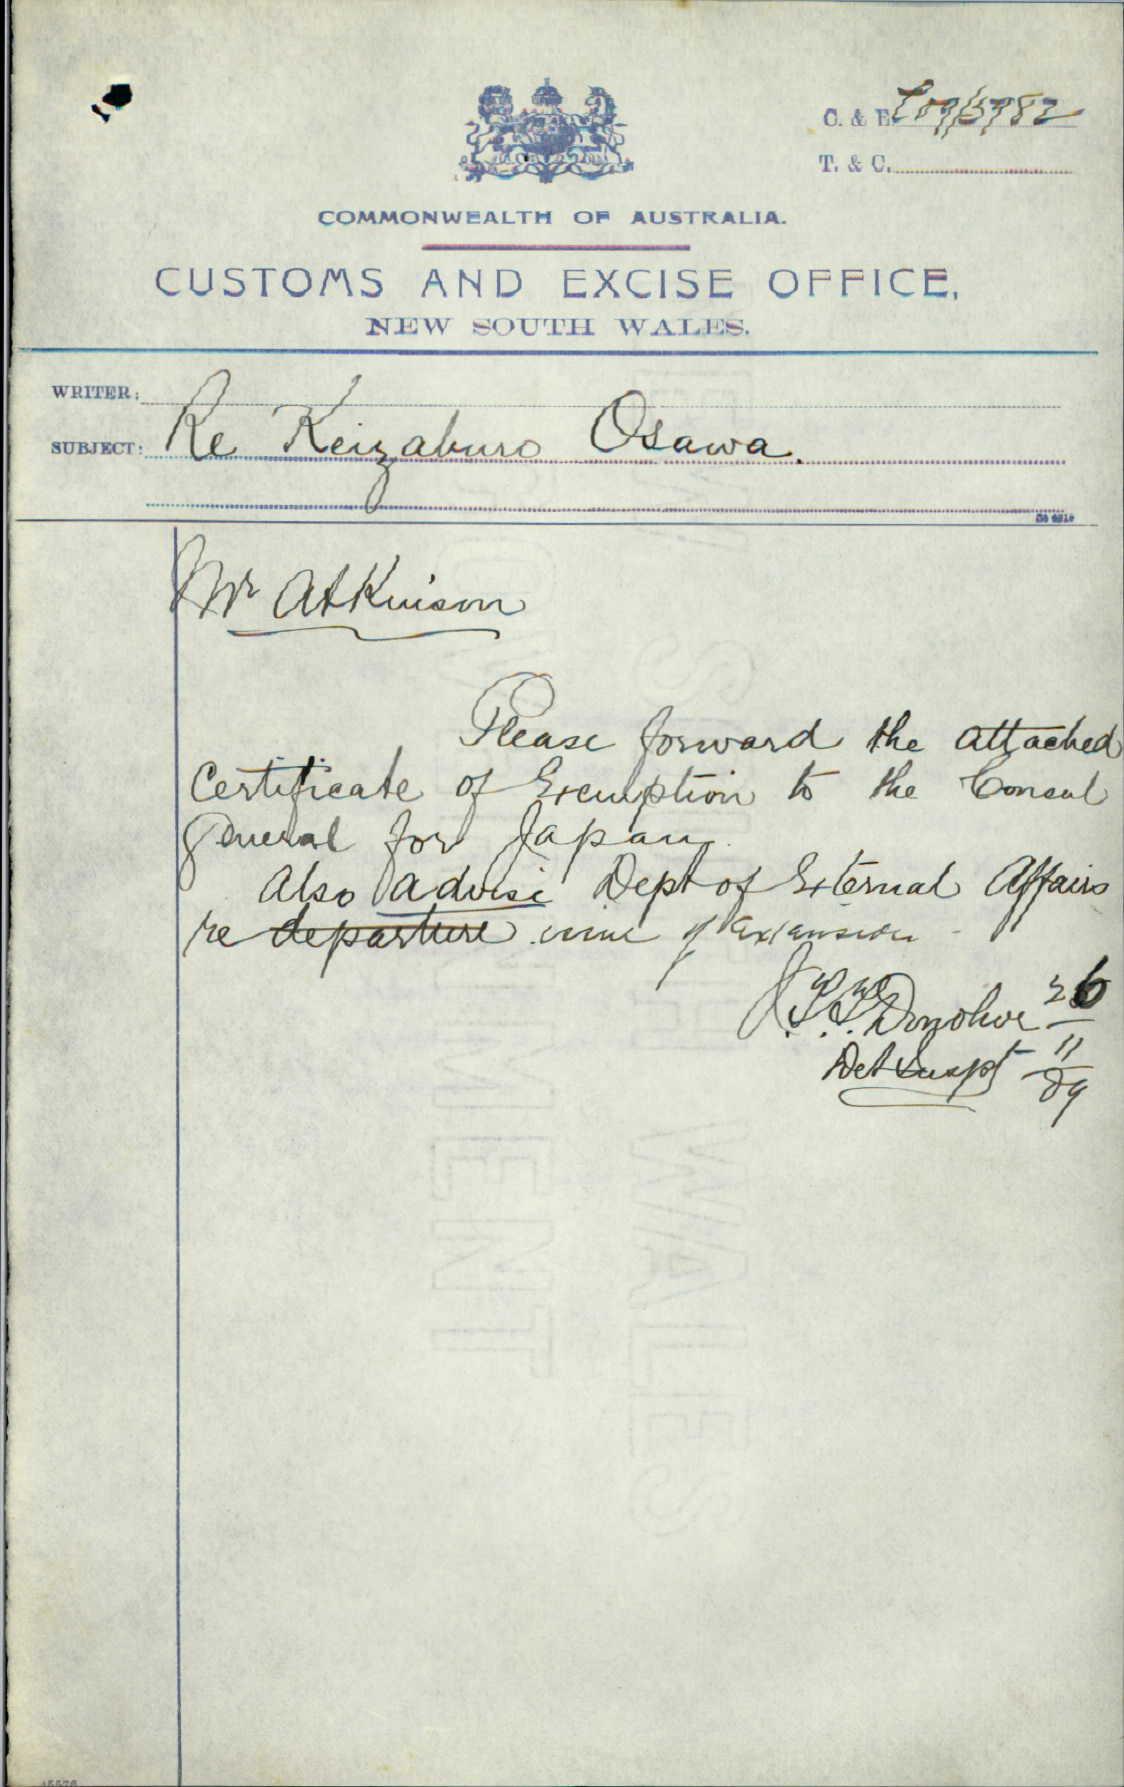 C. & E.
T. & C.
COMMONWEALTH OF AUSTRALIA.
CUSTOMS AND EXCISE OFFICE,
NEW SOUTH WALES.
WRITER:
SUBJECT: Re Keizaburo Osawa.
Mr Atkinson
Please forward the attached
Certificate of Exemption to the Consul
General for Japan.
Also advise Dept of External Affairs
re departure issue of extension
Donohoe 26
Det Inspt 11
09
NEW SOUTH WALES
GOVERNMENT